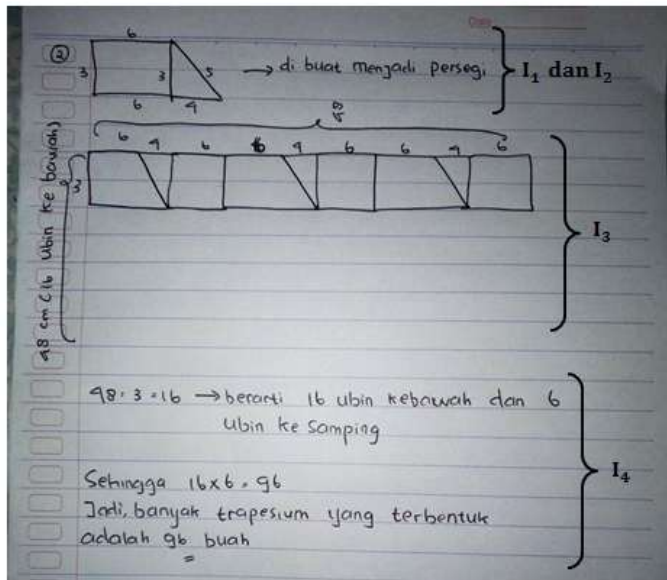 Date
②
6
3 3 5
6 4
→ di buat menjadi persegi
I₁ dan I₂
6 4 6 6 4 6 6 4 6
3
48 cm (16 ubin ke bawah)
I₃
48 : 3 = 16 → berarti 16 ubin kebawah dan 6
ubin ke samping
Sehingga 16 x 6 = 96
Jadi, banyak trapesium yang terbentuk
adalah 96 buah
I₄